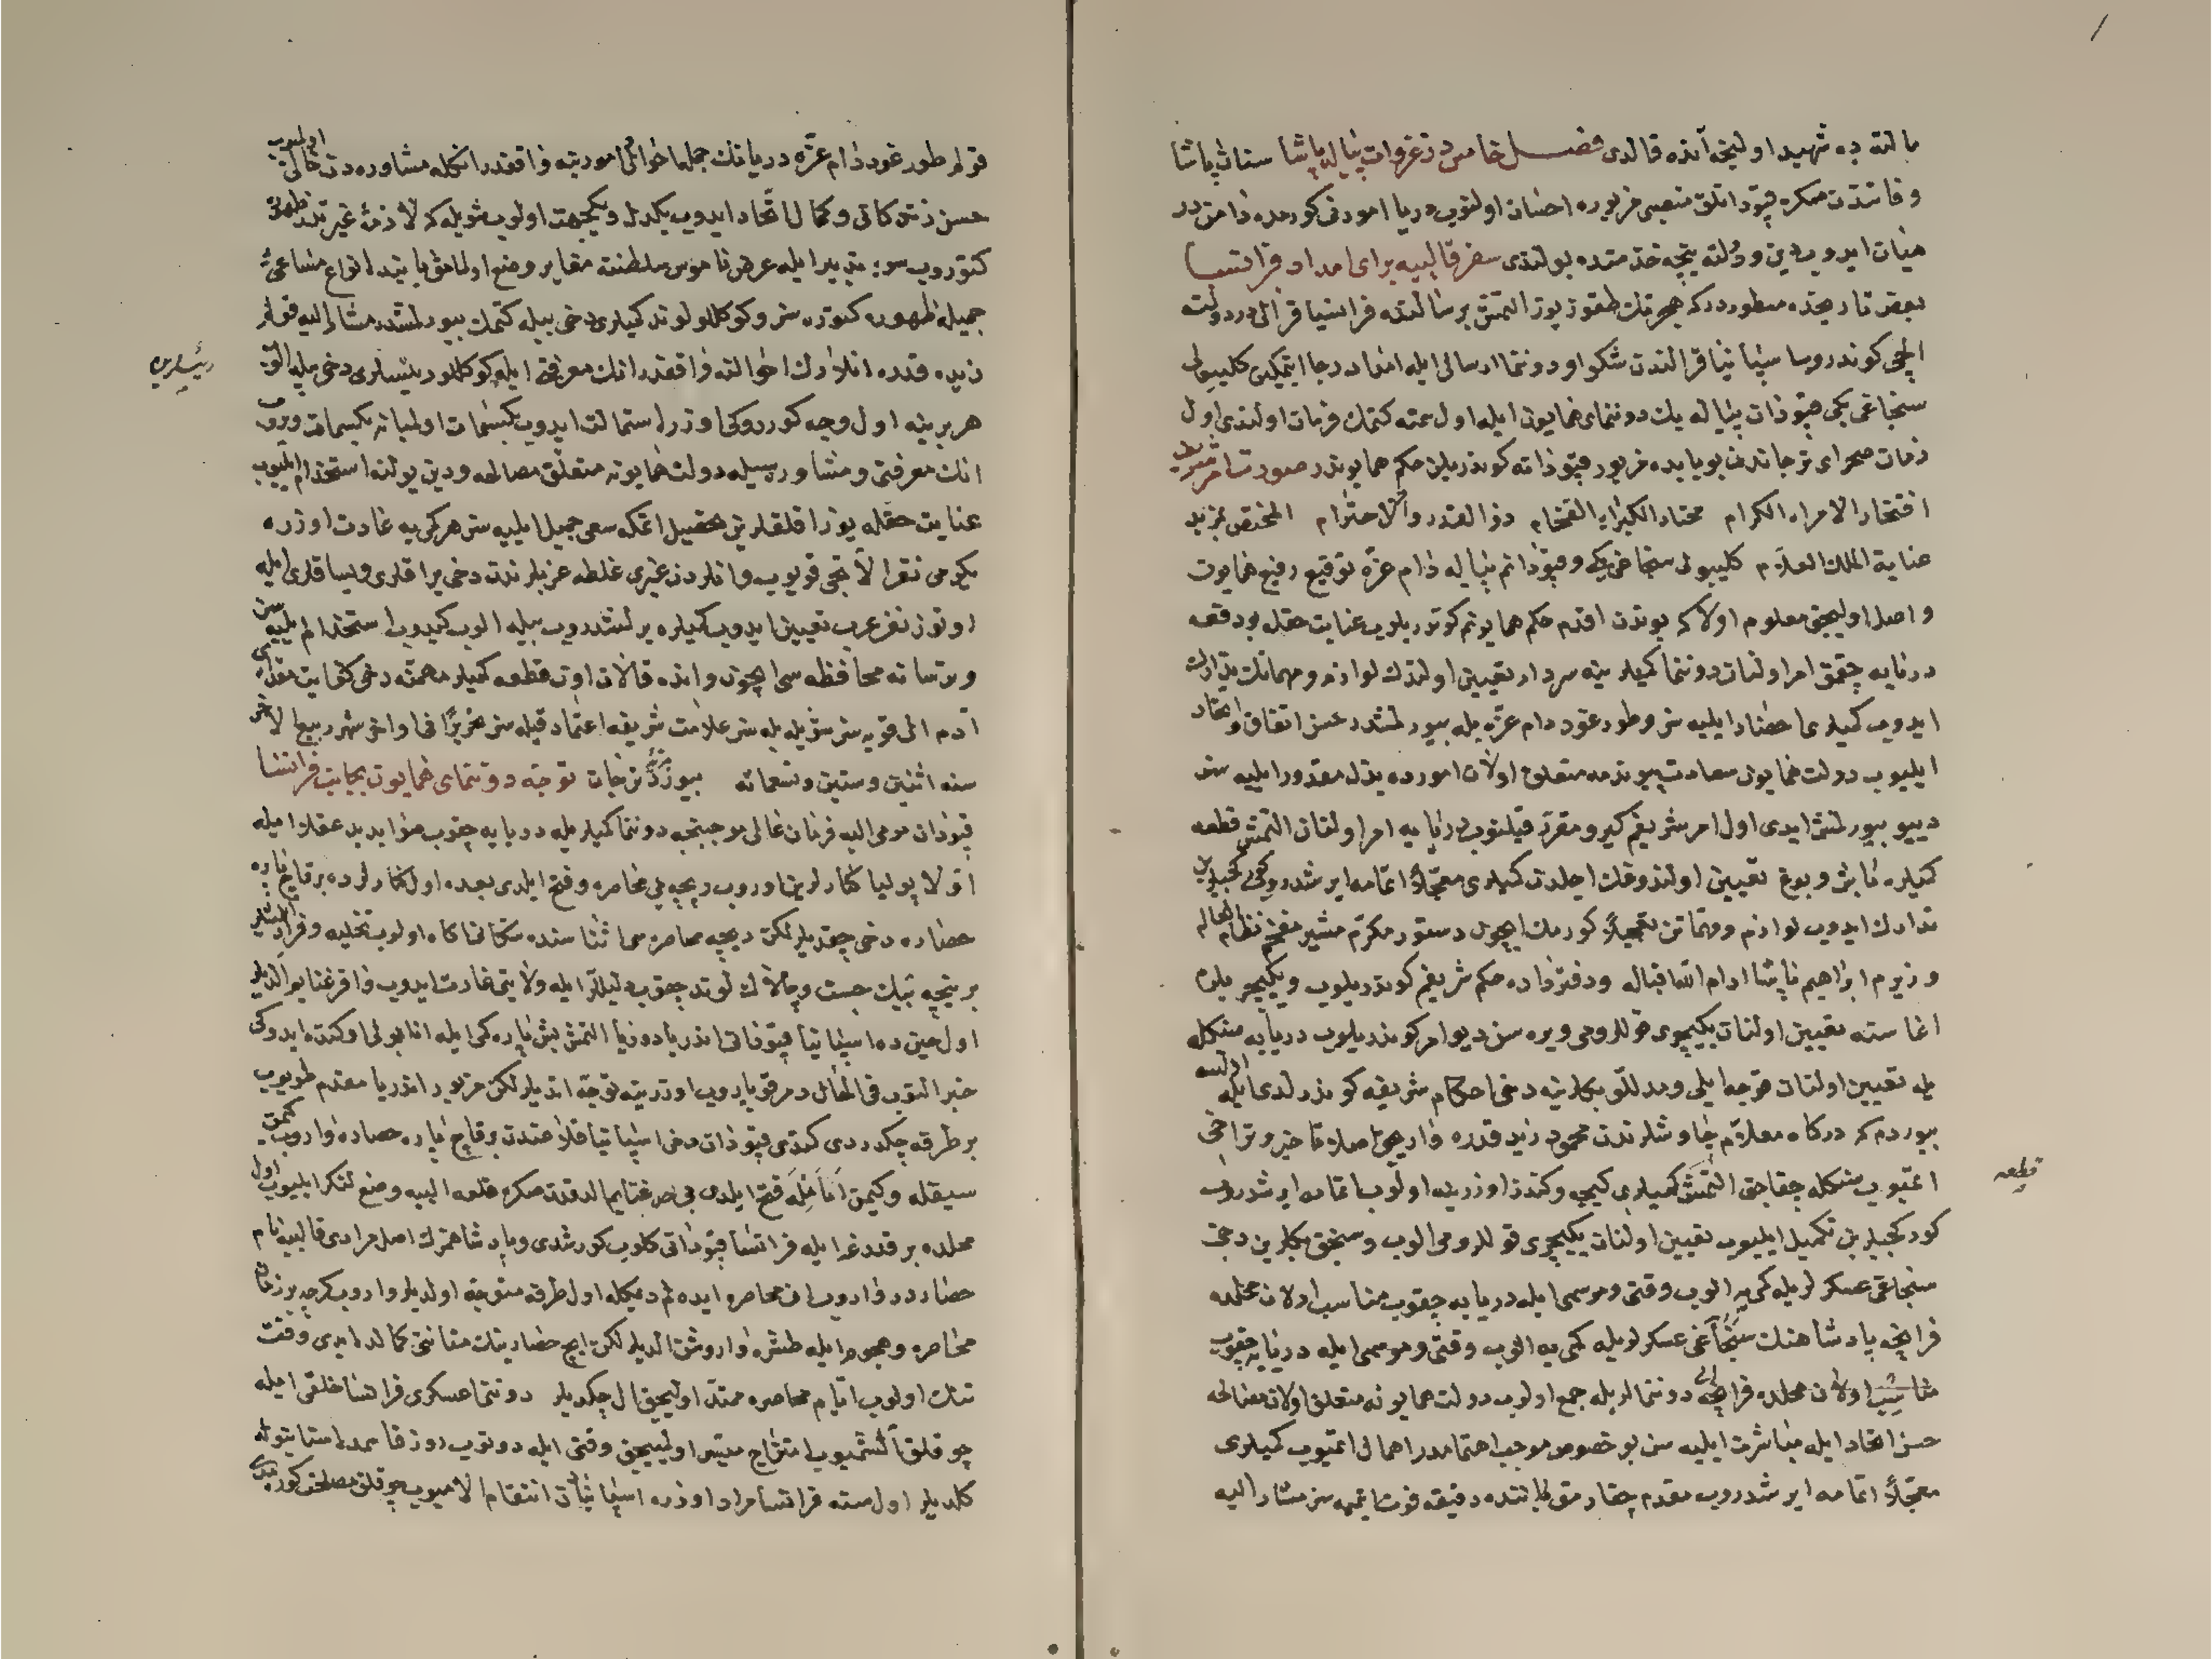 مالته ده شهید اولیجق آنده قالدی فصل خامس در غزوات پیاله پاشا سنان پاشا
وفاتندن صکره قپودانلق منصبی مزبوره احسان اولنوب دریا امورنی کورمده دامن در
میان ایدوب دین ودولته نیجه خدمتده بولندی سفر قالبیه برای امداد فرانسا
بعض تاریخده مسطوردر که هجرتك طقوز یوز التمش برسالنده فرانسا قرالی در دولته
ایلچی کوندروب اسپانیا قرالندن شکوا ودوننما ارسالی ایله امداد رجا ایتمکین کلیبولی
سنجاغی بکی قپودان پیاله بك دوننمای همایون ایله اول سمته کتمك فرمان اولندی اول
زمان صحرای ترجاندن بو بابده مزبور قپودانه کوندریلن حکم همایوندر صورت امر شریف
افتخار الامراء الکرام مختار الکبراء الفخام ذو القدر والاحترام المختص بمزید
عنایة الملك العلام کلیبولی سنجاغی بکی وقپودانم پیاله دام عزه توقیع رفیع همایون
واصل اولیجق معلوم اولا که بوندن اقدم حکم همایونم کوندریلوب عنایت حقله بو دفعه
دریایه چقمق امر اولنان دوننما کمیلرینه سردار تعیین اولندك لوازم ومهماتك تدارك
ایدوب کمیلری احضار ایلیه سن وطورغود دام عزه بله بیورلمشدر حسن اتفاق واتحاد
ایلیوب دولت همایون سعادت پیوندمه متعلق اولان امورده بذل مقدور ایلیه سن
دییو بیورلمش ایدی اول امر شریفم کیرو مقرر قیلنوب دریایه امر اولنان التمش قطعه
کمیلره باش وبوغ تعیین اولندوقك اجلدن کمیلری معجلا اتمامه ایرشدروب کورکجیلرین
تدارك ایدوب لوازم ومهماتن تعجیلا کورمك ایچون دستور مکرم مشیر مفخم نظام العالم
وزیرم ابراهیم پاشا ادام الله اقباله ودفترداره حکم شریفم کوندریلوب ویکیچریلرم
اغاسنه تعیین اولنان یکیچری قوللرومی ویره سن دیو امر کوندریلوب دریایه سنکله
بله تعیین اولنان قوجه ایلی ومدللو بکلرینه دخی احکام شریفه کوندرلدی ایله اولسه
بیوردم که درکاه معلام چاوشلرندن محمود زید قدره واریجق اصلا تاخیر وتراخی
اتمیوب سنکله چقاجق التمش کمیلری کیجه وکوندز اوزرینه اولوب اتمامه ایرشدروب
قطعه
کورکجیلرین تکمیل ایلیوب تعیین اولنان یکیچری قوللرومی الوب وسنجق بکلرین دخی
سنجاغی عسکرلریله کمی یه الوب وقتی وموسمی ایله دریایه چقوب مناسب اولان محلده
فرانجه پادشاهنك سنجاغی عسکرلریله کمی یه الوب وقتی وموسمی ایله دریایه چقوب
مناسب اولان محلده فرانچه دوننمالریله جمع اولوب دولت همایونه متعلق اولان مصالحه
حسن اتحاد ایله مباشرت ایلیه سن بو خصوص موجب اهتمامدر اهمال اتمیوب کمیلری
معجلا اتمامه ایرشدروب مقدم چقارمق بابنده دقیقه فوت اتمیه سز مشار الیه
قولم طورغود دام عزه دریانك جمله احوالی امورینه واقفدر انکله مشاوره دن خالی اولمیوب
حسن زندکانی وکمال اتحاد ایدوب یکدل ویکجهت اولوب شویله که لازمه غیرتدر ظهوره
کتوروب سوء تدبیر ایله عرض ناموس سلطنته مغایر وضع اولنمامق بابنده انواع مساعی
جمیله ظهوره کتوره سز وکوکللو لوند کمیلری دخی بیله کتمك بیورلمشدر مشار الیه قولم
زیده قدره انلارك احوالنه واقفدر انك معرفتی ایله کوکللو رئیسلری دخی بیله الوب
رئیسلرین
هر برینه اول وجه کوردوکی اوزره استمالت ایدوب بکسمات اولمیانه بکسمات ویروب
انك معرفتی ومشاوره سیله دولت همایونه متعلق مصالحه ودین یولنه استخدام ایلیوب
عنایت حقله یوز اقلقلرین تحصیل اتمکه سعی جمیل ایلیه سز هر کمی یه عادت اوزره
یکرمی نفر الاتجی قویوب وانلردن غیری غلطه عزبلرندن دخی یراقلری ویساقلری ایله
اوتوز نفر عزب تعیین ایدوب کمیلره یرلشدروب بیله الوب کیدوب استخدام ایلیه سن
وترسانه محافظه سی ایچون وانده قالان اون قطعه کمیلر مهمنه دخی کفایت مقداری
آدم الی قویه سز شویله بله سز علامت شریفه اعتماد قیله سز تحریرا فی اواخر شهر ربیع الاخر
سنه اثنین وستین وتسعمائه بیورد ترجان توجه دوننمای همایون بجانب فرانسا
قپودان مومی الیه فرمان عالی موجبنجه دوننما کمیلریله دریایه چقوب صوابدید عقلا ایله
اولا پولیا کنارلرینا وروب ریجه یی محاصره وفتح ایلدی بعده اول کنارلرده بر قاچ پاره
حصاره دخی چقدیلر لکن ریجه محاصره سی اثناسنده سکانی اکاه اولوب تخلیه وفرار اتمشلر
بر نیجه بیك جست وچالاك لوند چقوب دلیللر ایله ولایتی غارت ایدوب وافر غنایم الدیلر
اول حین ده اسپانیا قپودانی اندریا دوریا التمش بش پاره کمی ایله انابولی اوکنده ایدوکی
خبر النوب فی الحال دمر قوپاروب اوزرینه توجه اتدیلر لکن مزبور اندریا مقدم طویوب
بر طرفه چکدردی کتدی قپودان دخی اسپانیا قلاعندن بر قاچ پاره حصاره واروب کتمق
سیقله وکیمن امانله فتح ایلدی بی حد غنایم الدقدن صکره قلعه البیه وضع لنکر ایلیوب اول
محلده بر قدرغه ایله فرانسا قپودانی کلوب کورشدی وپادشاهمزك اصل مرادی قالبیه نام
حصاردر واروب انی محاصره ایده لم دیمکله اول طرفه متوجه اولدیلر واروب کرچه بر زمان
محاصره وهجوم ایله طشره واروشن الدیلر لکن ایچ حصارینك متانتی کمالده ایدی وقت
تنك اولوب ایام محاصره ممتد اولیجق ال چکدیلر دوننما عسکری فرانسا خلقی ایله
چوقلق آلشمیوب امتزاج میسر اولمییجق وقتی ایله دونوب روز قاسمده استانبوله
کلدیلر اول سنه فرانسا مراد اوزره اسپانیادن انتقام الامیوب چوقلق مصلحت کورمدی